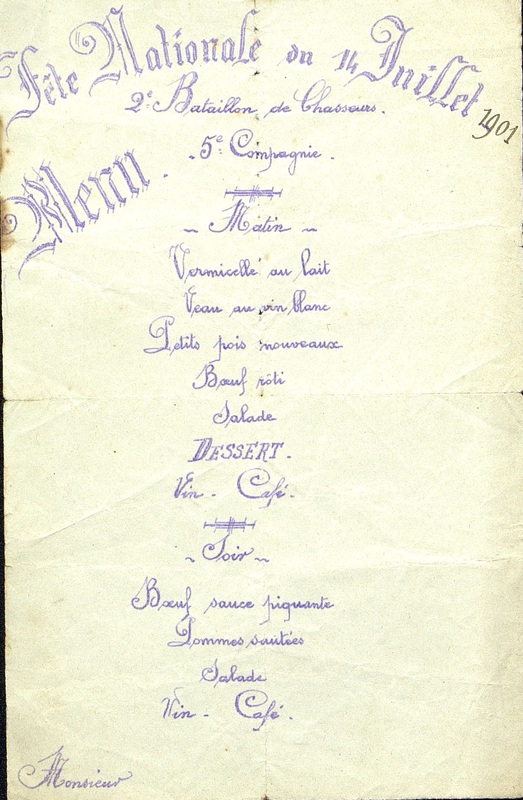 Fête Nationale du 14 Juillet
1901
2e Bataillon de Chasseurs.
5e Compagnie.
Menu.
~ Matin ~
Vermicelle au lait
Veau au vin blanc
Petits pois nouveaux
Bœuf rôti
Salade
DESSERT.
Vin - Café.
~ Soir ~
Bœuf sauce piquante
Pommes sautées
Salade
Vin - Café.
Monsieur